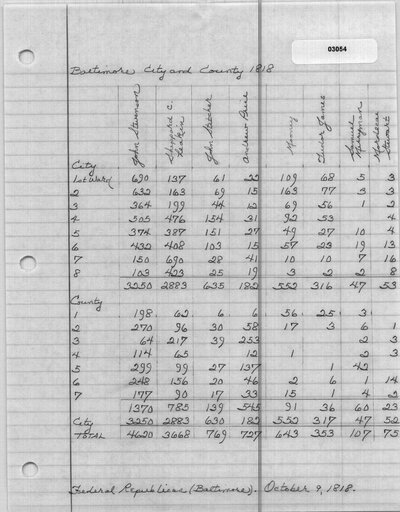 03054
Baltimore City and County 1818
John Stevenson Sheppard C. Leakin John Stricker Andrew Price Mooney Tudor James Samuel Merryman Mordecai Stewart
City
1st Ward 690 137 61 22 109 68 5 3
2 632 163 69 15 163 77 3 3
3 364 199 44 12 69 56 1 2
4 505 476 154 31 92 53 4
5 374 387 151 27 49 27 10 4
6 432 408 103 15 57 23 19 13
7 150 690 28 41 10 10 7 16
8 103 423 25 19 3 2 2 8
3250 2883 635 182 552 316 47 53
County
1 198 62 6 6 56 25 3
2 270 96 30 58 17 3 6 1
3 64 217 39 253 2 3
4 114 65 12 1 2 3
5 299 99 27 137 1 42
6 248 156 20 46 2 6 1 14
7 177 90 17 33 15 1 4 2
1370 785 139 545 91 36 60 23
City 3250 2883 630 182 552 317 47 52
TOTAL 4620 3668 769 727 643 353 107 75
Federal Republican (Baltimore). October 9, 1818.